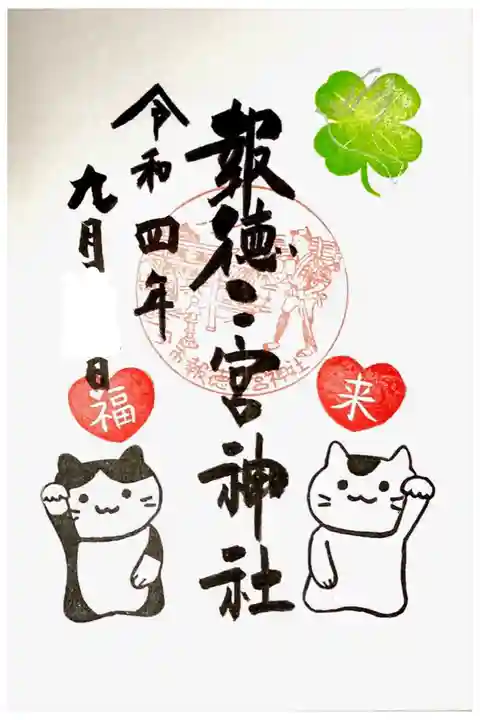 報徳二宮神社
令和四年
九月 日
来
福
市報徳二宮神社